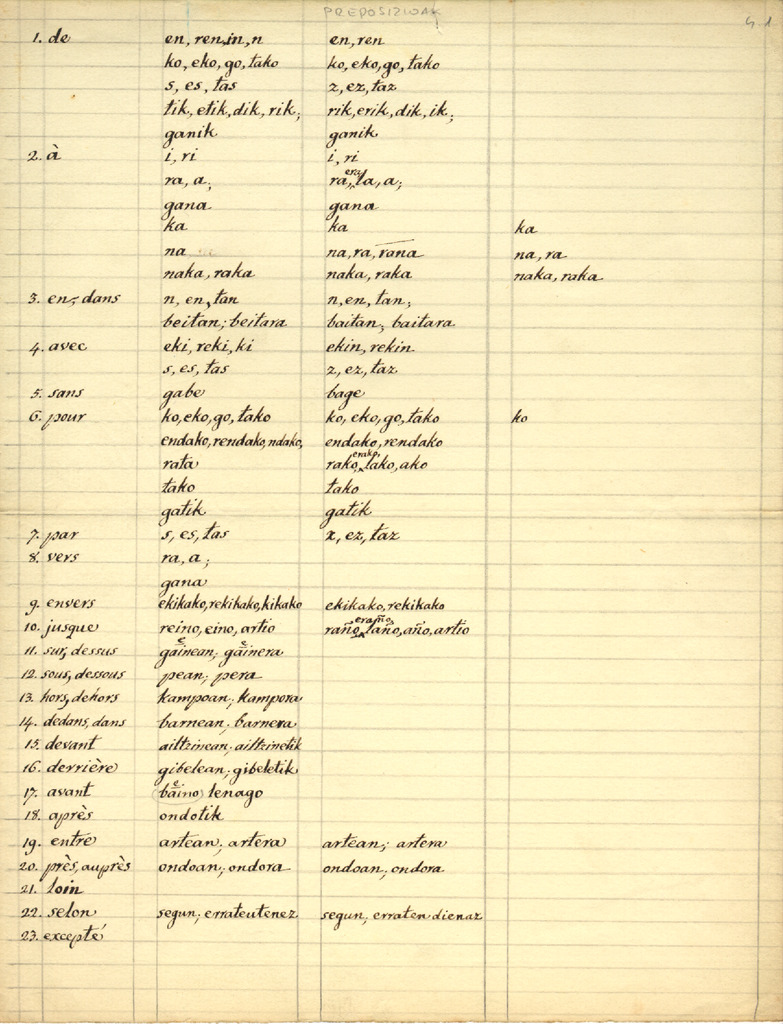 PREPOSIZIOAK
1. de en, ren, in, n en, ren
ko, eko, go, tako ko, eko, go, tako
s, es, tas z, ez, taz
tik, etik, dik, rik; rik, erik, dik, ik;
ganik ganik
2. à i, ri i, ri
ra, a; ra, era, la, a;
gana gana
ka ka ka
na na, ra, rana na, ra
naka, raka naka, raka naka, raka
3. en, dans n, en, tan n, en, tan;
beitan; beitara baitan; baitara
4. avec eki, reki, ki ekin, rekin
s, es, tas z, ez, taz
5. sans gabe bage
6. pour ko, eko, go, tako ko, eko, go, tako ko
endako, rendako, ndako, endako, rendako
rata rako, erako, lako, ako
tako tako
gatik gatik
7. par s, es, tas z, ez, taz
8. vers ra, a;
gana
9. envers ekikako, rekikako, kikako ekikako, rekikako
10. jusque reino, eino, artio raño, eraño, laño, año, artio
11. sur, dessus gaïnean; gaïnera
12. sous, dessous pean; pera
13. hors, dehors kampoan; kampora
14. dedans, dans barnean; barnera
15. devant ailtzinean; ailtzinetik
16. derrière gibelean; gibeletik
17. avant (baïno) lenago
18. après ondotik
19. entre artean; artera artean; artera
20. près, auprès ondoan; ondora ondoan; ondora
21. loin
22. selon segun; errateutenez segun; erraten dienaz
23. excepté